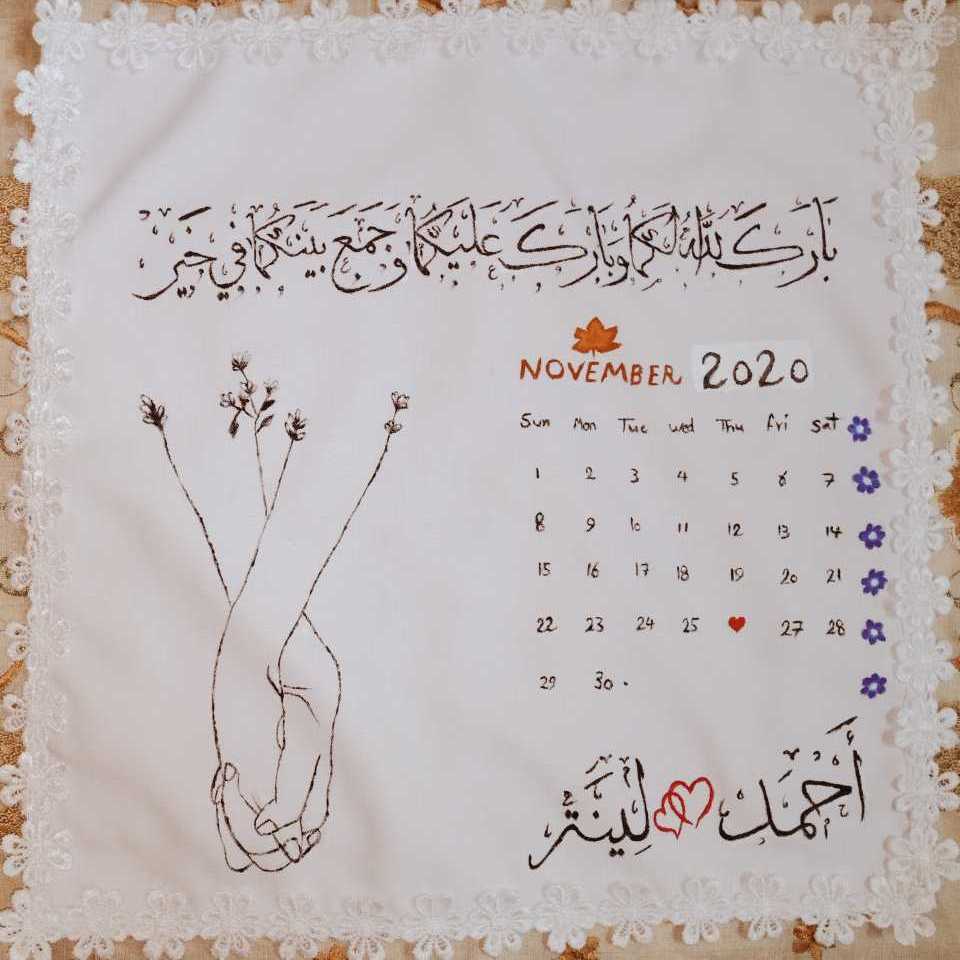 بَارَكَ اللَّهُ لَكُمَا وَبَارَكَ عَلَيْكُمَا وَجَمَعَ بَيْنَكُمَا فِي خَيْرٍ
NOVEMBER 2020
Sun Mon Tue wed Thu fri sat
1 2 3 4 5 6 7
8 9 10 11 12 13 14
15 16 17 18 19 20 21
22 23 24 25 27 28
29 30.
أَحْمَد لِينَة